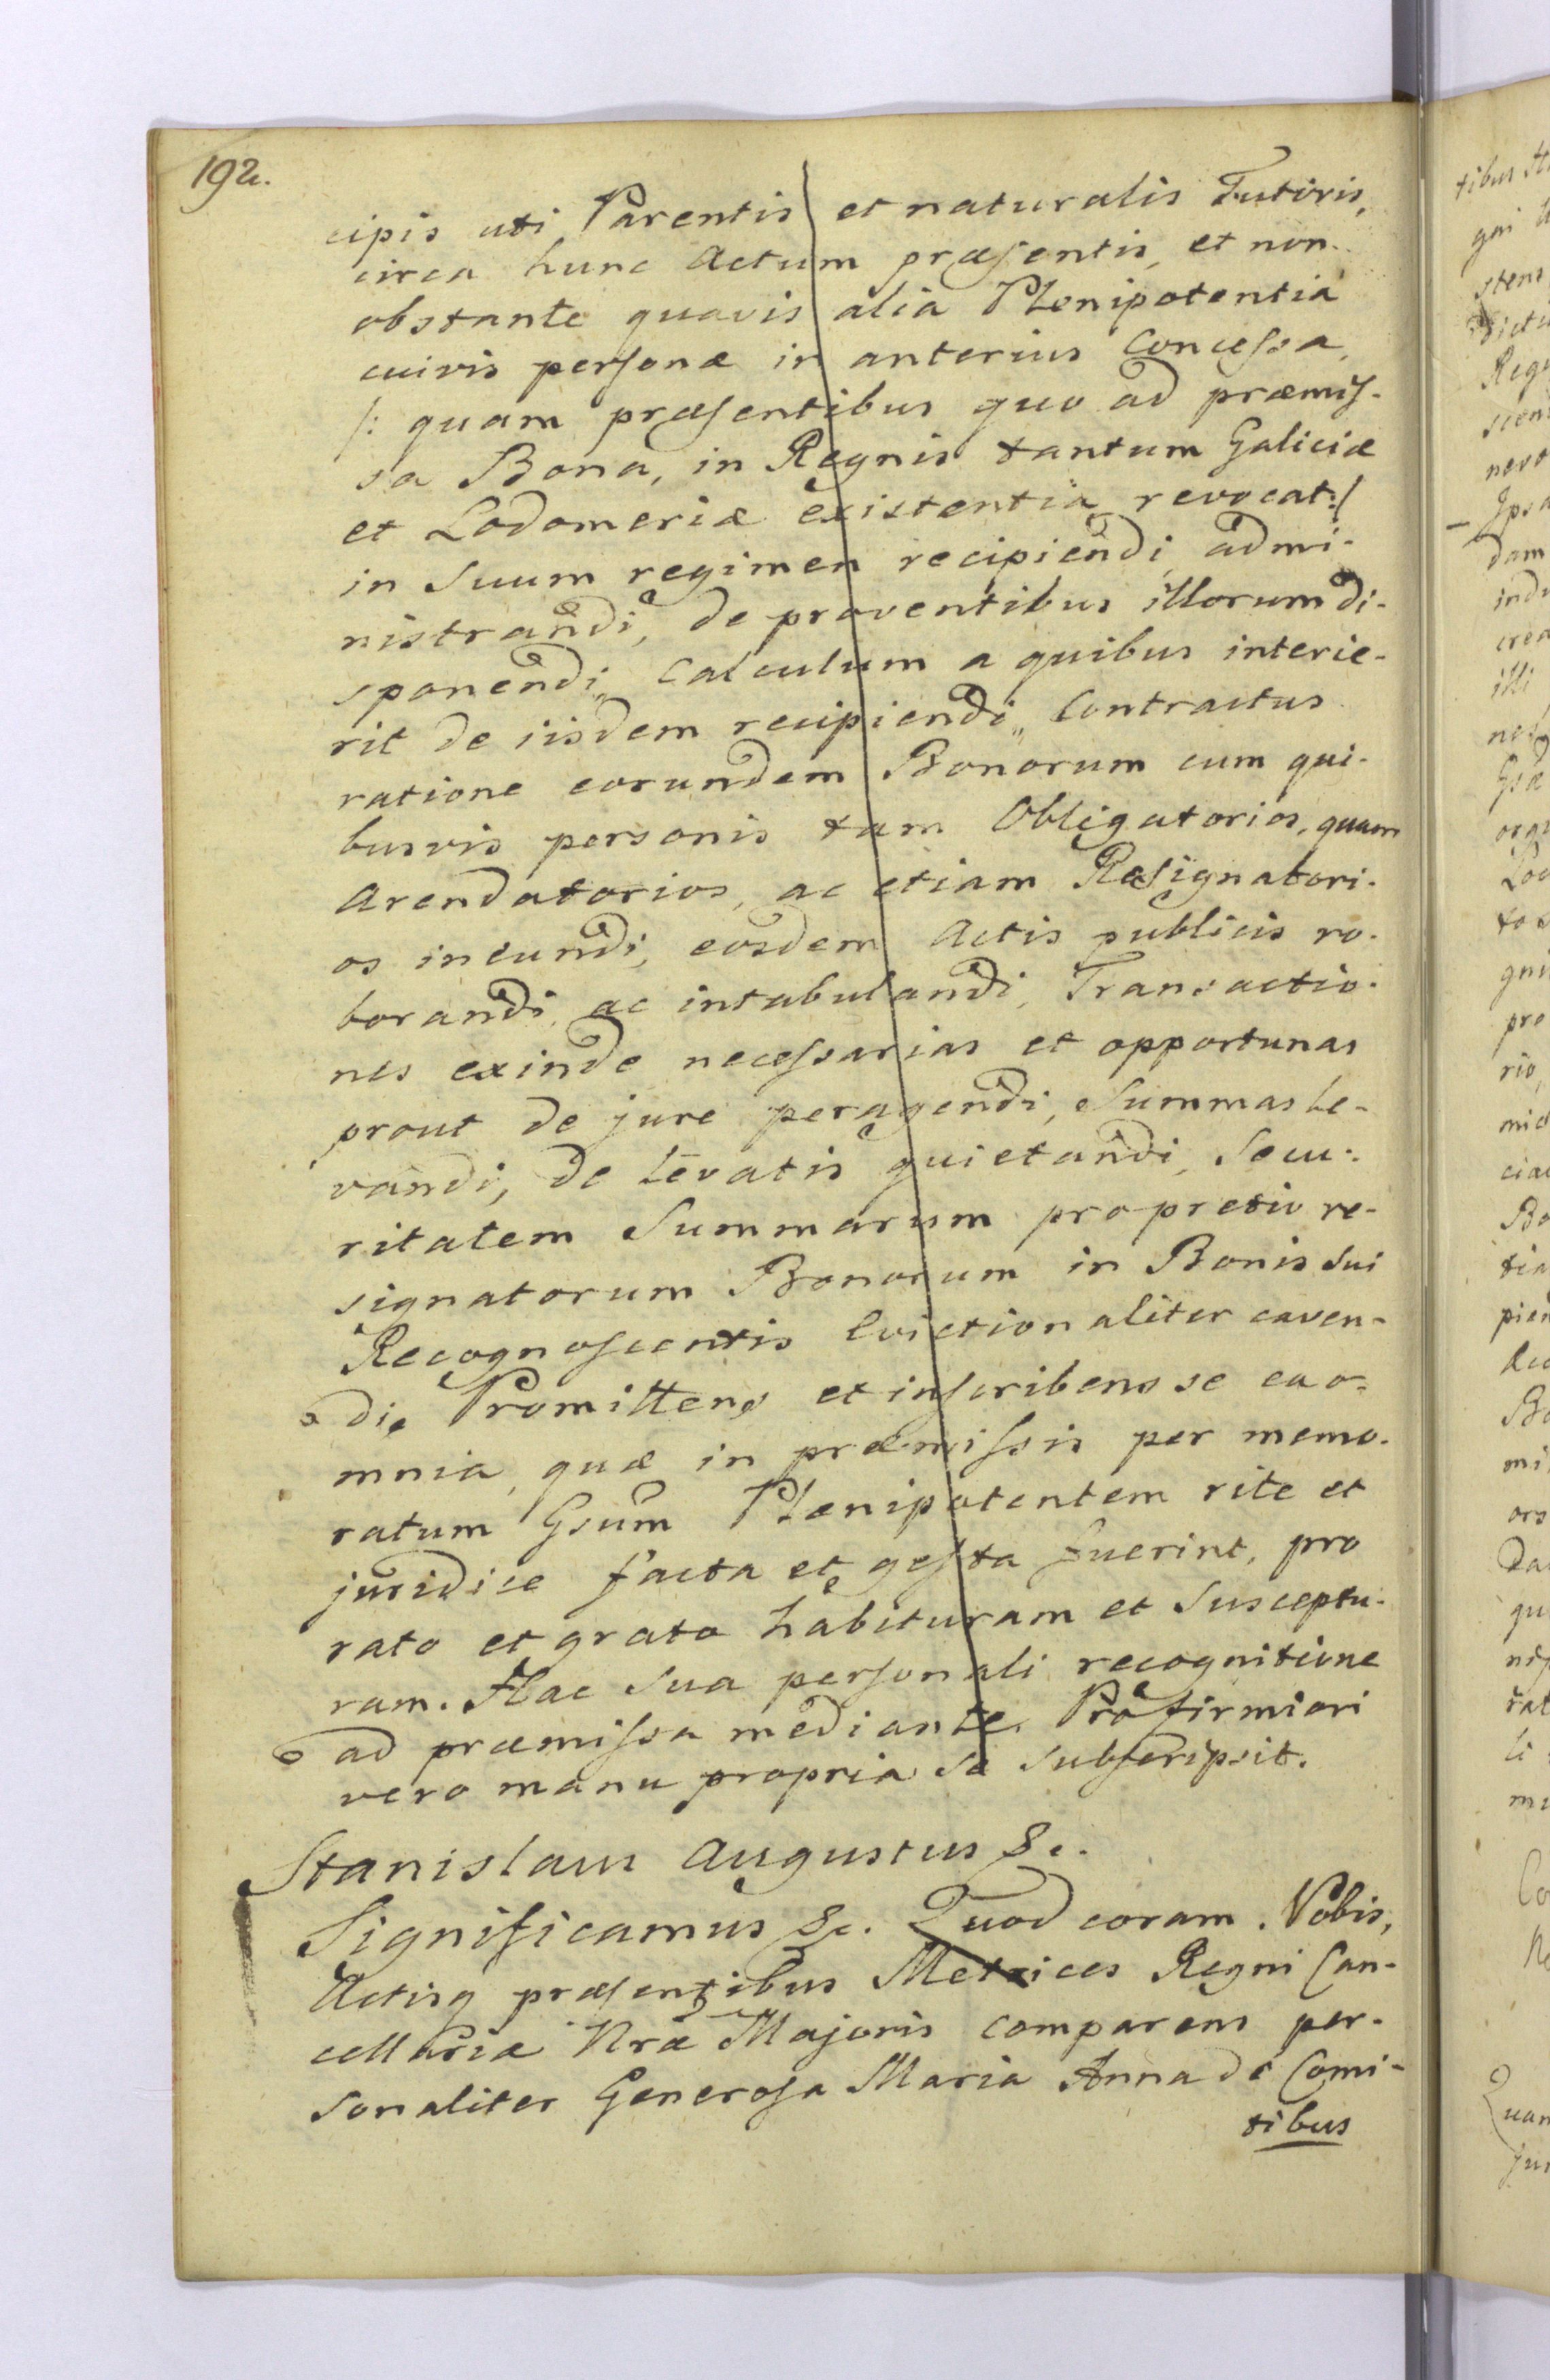 192.
cipis uti Parentis et naturalis Tutoris,
circa hunc Actum præsentis, et non
obstante quavis alia Plenipotentia
cuivis personæ in anterius Concessa,
/: quam præsentibus quo ad præmis-
sa Bona, in Regnis tantum Galiciæ
et Lodomeriæ existentia revocat :/
in Suum regimen recipiendi, admi-
nistrandi, de proventibus illorum di-
sponendi, Calculum a quibus interie-
rit de iisdem recipiendi, Contractus
ratione eorundem Bonorum cum qui-
busvis personis tam Obligatorios, quam
Arendatorios, ac etiam Resignatori-
os ineundi, eosdem Actis publicis ro-
borandi, ac intabulandi, Transactio-
nes exinde necessarias et opportunas
prout de jure peragendi, Summas le-
vandi, de levatis quietandi, Secu-
ritatem Summarum pro pretio re-
signatorum Bonorum in Bonis Sui
Recognoscentis Evictionaliter caven-
di, Promittens et inscribens se ea o-
mnia, quæ in præmissis per memo-
ratum Gsum Plenipotentem rite et
juridice facta et gesta fuerint, pro
rato et grato habituram et Susceptu-
ram. Hac Sua personali recognitione
ad præmissa mediante. Pro firmiori
vero manu propria se Subscripsit.
Stanislaus Augustus &c.
Significamus &c. Quod coram Nobis,
Actisq præsentibus Metrices Regni Can-
cellariæ Nræ Majoris comparens per-
sonaliter Generosa Maria Anna de Comi-
tibus